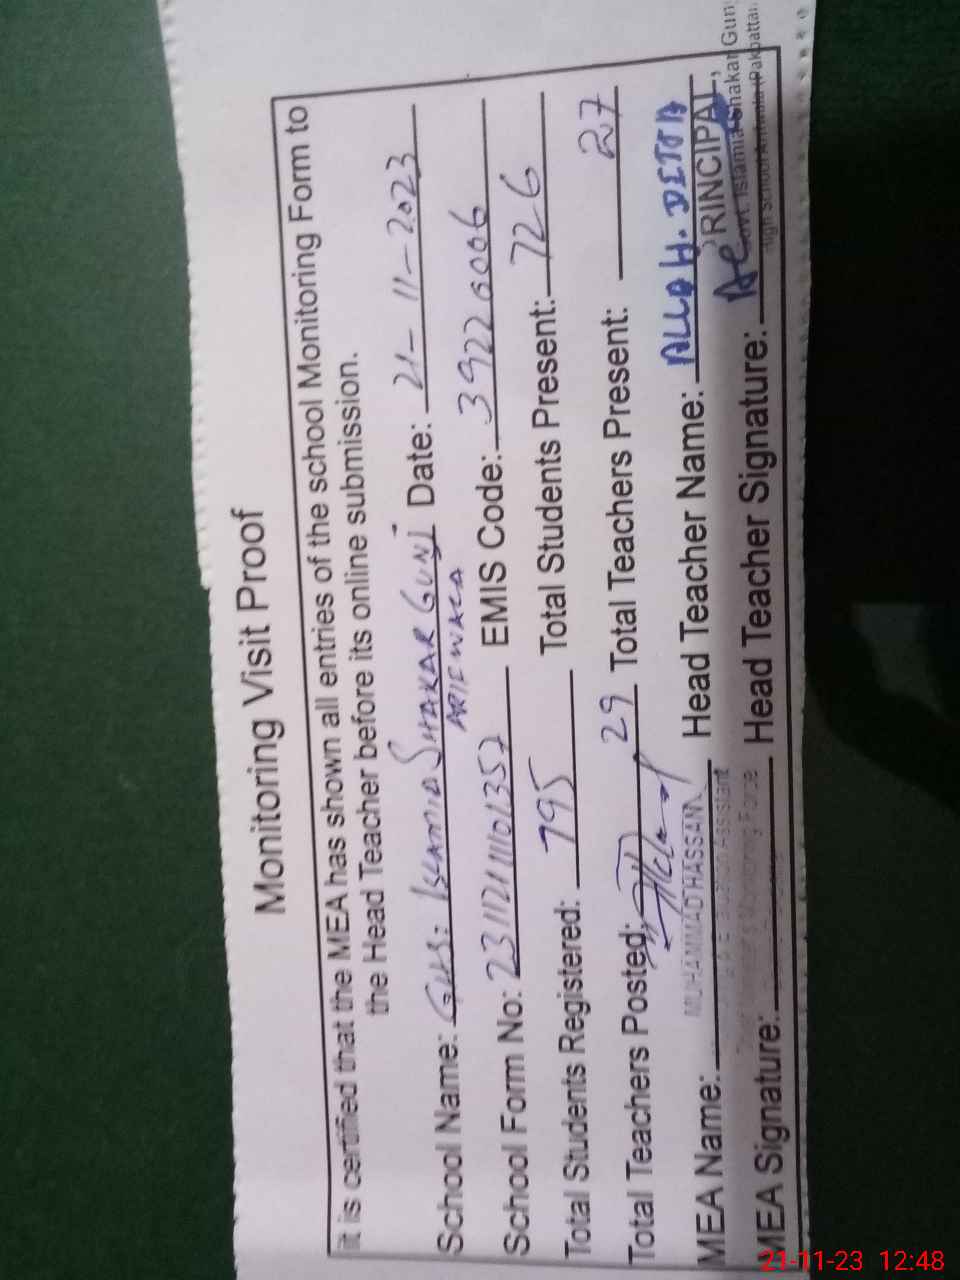 Monitoring Visit Proof
it is certified that the MEA has shown all entries of the school Monitoring Form to
the Head Teacher before its online submission.
School Name: GHS: ISLAMIA SHAKAR GUNJ Date: 21-11-2023
ARIFWALA
School Form No: EMIS Code: 39220006
Total Students Registered: 795 Total Students Present: 726
Total Teachers Posted: 29 Total Teachers Present: 27
MEA Name: MUHAMMAD HASSAN Head Teacher Name: ALLAH. DITTA
MEA Signature: Head Teacher Signature:
PRINCIPAL,
Govt. Islamia Shakar Gunj
High School Arifwala (Pakpattan
21-11-23 12:48